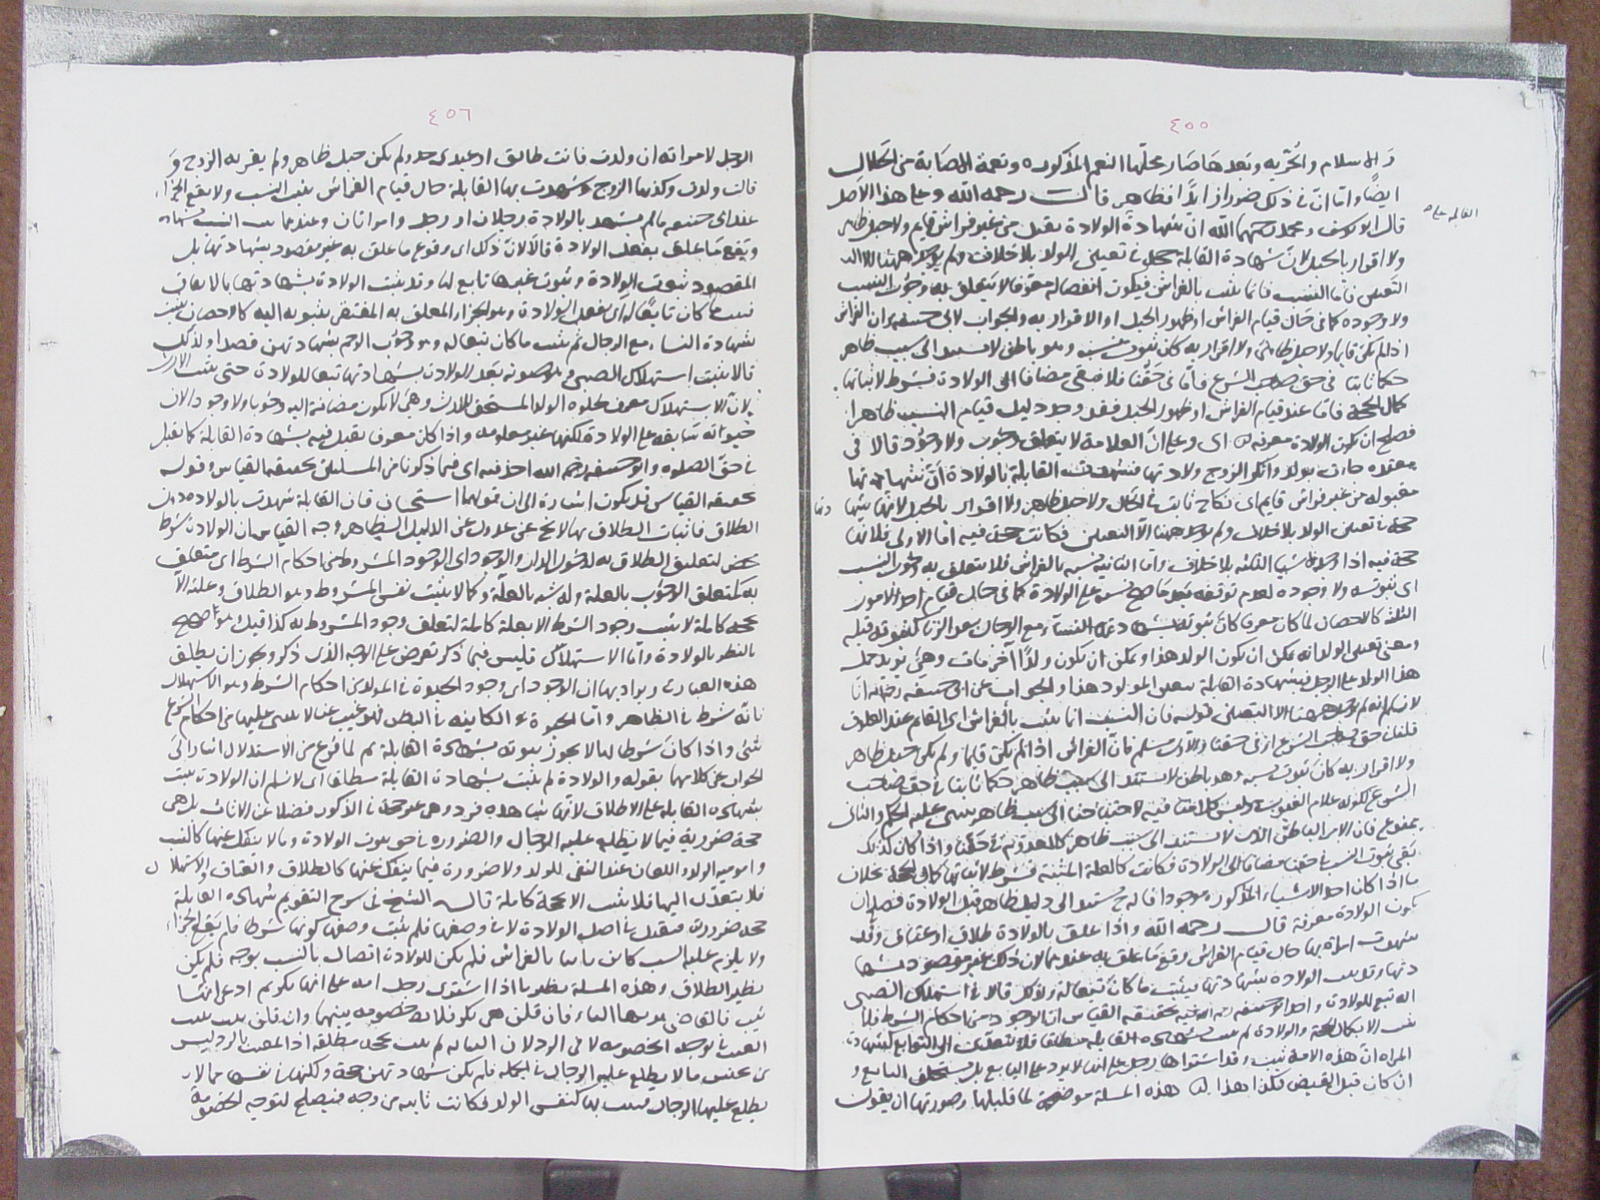 ٤٥٥
والاسلام والحرية وبعدها صار محلها النعم المذكورة ونعمة الاصابة من الحلال
ايضا واما ان في ذلك ضررا زايدا فظاهر قال رحمه الله وعلى هذا الاصل
قال ابو يوسف ومحمد رحمهما الله ان شهادة القابلة على الولادة يقبل من غير فراش قايم ولا حبل ظاهر
ولا اقرار بالحبل لان شهادة القابلة حجة في تعيين الولد بلا خلاف ولم يوجد ههنا الا
التعيين فاما النسب فانما يثبت بالفراش فيكون انفصاله معرفا لا يتعلق به وجوب النسب
ولا وجوده كما في حال قيام الفراش او ظهور الحبل او الاقرار به والجواب لابي حنيفة ان الفراش
اذا لم يكن قايما ولا حبل ظاهر ولا اقرار به كان ثبوت نسبه وهو باطن لا يستند الى سبب ظاهر
حكما ثابتا في حق صاحب الشرع فاما في حقنا فلا فبقي مضافا الى الولادة فشرط لاثباتها
كمال الحجة فاما عند قيام الفراش او ظهور الحبل فقد وجد دليل قيام النسب ظاهرا
فصلح ان يكون الولادة معرفة له اي وعلى ان العلامة لا يتعلق بها وجوب ولا وجود قالا في
معتدة جات بولد وانكر الزوج ولادتها فشهدت القابلة بالولادة ان شهادتها
مقبولة من غير فراش قايم اي نكاح ثابت في الحال ولا حبل ظاهر ولا اقرار بالحبل لان شهادتها
حجة في تعيين الولد بلا خلاف ولم يوجد ههنا الا التعيين فكانت حجة فيه اما الاولى فلانها
حجة فيه اذا وجد الاشيا الثلثة بلا خلاف واما الثانية فلانه بالفراش فلا يتعلق به وجوب النسب
اي ثبوته ولا وجوده لعدم توقفه على الولادة كما في حال قيام احد الامور
الثلثة كالاحصان لما كان معرفا كان ثبوته بشهادة النساء مع الرجال
ومعنى تعيين الولد انه يمكن ان يكون الولد هذا ويمكن ان يكون ولدا آخر مات وهي تريد حمل
هذا الولد على الرجل فبشهادة القابلة يتعين المولود هذا والجواب عن ابي حنيفة رحمه الله انا
لا نسلم انه لم يوجد ههنا الا التعيين قوله فان النسب انما يثبت بالفراش
قلنا في حق صاحب الشرع او في حقنا والاول مسلم فان الفراش اذا لم يكن قايما ولم يكن حبل ظاهر
ولا اقرار به كان ثبوت نسبه وهو باطن لا يستند الى سبب ظاهر حكما ثابتا في حق صاحب
الشرع لكونه علام الغيوب وليس كلامنا فيه لاحتياجنا الى سبب ظاهر يبتنى عليه الحكم والثاني
ممنوع فان الامر الباطن الذي لا يستند الى سبب ظاهر كالمعدوم في حقنا واذا كان كذلك
بقي ثبوت النسب في حقنا مضافا الى الولادة فكانت كالعلة المثبتة فشرط لاثباتها كمال الحجة بخلاف
ما اذا كان احد الاشياء المذكورة موجودا فانه ح يستند الى دليل ظاهر قبل الولادة فصلح ان
يكون الولادة معرفة قال رحمه الله واذا علق بالولادة طلاق او عتاق وقد
شهدت امراة بها حال قيام الفراش وقع ما علق به عندهما لان ذلك غير مقصود بشهادتها
وقد يثبت الولادة بشهادتها فيثبت ما كان تبعا له وكذلك قالا في استهلاك الصبي
انه تبع للولادة وابو حنيفة رحمه الله اخذ فيه بحقيقة القياس ان الوجود من احكام الشرط فلا
يثبت الا بكمال الحجة والولادة لم يثبت بشهادة القابلة مطلقا فلا يتعدى الى التوابع كشهادة
المراة ان هذه الامة ثيب وقد اشتراها رجل على انها بكر لا يرد على البايع بل يستحلف البايع و
ان كان قبل القبض فكذا هذا هذه المسئلة موضحة لما قبلها وصورتها ان يقول
القابلة على
٤٥٦
الرجل لامراته ان ولدت فانت طالق او عبدي حر ولم يكن حبل ظاهر ولم يقر به الزوج و
قالت ولدت وكذبها الزوج وشهدت بها القابلة حال قيام الفراش يثبت النسب ولا يقع الجزاء
عند ابي حنيفة ما لم يشهد بالولادة رجلان او رجل وامراتان وعندهما يثبت النسب بشهادتها
ويقع ما علق بفعل الولادة قالا لان ذلك اي وقوع ما علق به غير مقصود بشهادتها بل
المقصود ثبوت الولادة وثبوت غيرها تابع لها وقد يثبت الولادة بشهادتها بالاتفاق
فيثبت ما كان تابعا له اي بفعل الولادة وهو الجزاء المعلق به المفتقر ثبوته اليه كالاحصان يثبت
بشهادة النساء مع الرجال ثم يثبت ما كان تبعا له وهو وجوب الرجم بشهادتهن قصدا ولذلك
قالا يثبت استهلاك الصبي وهو صوته بعد الولادة بشهادتها تبعا للولادة حتى يثبت الارث
لان الاستهلاك معرف لحيوة الولد المستحق للارث وهي لا يكون مضافة اليه وجوبا ولا وجودا لان
حيوته سابقة على الولادة لكنها غير معلومة واذا كان معرفا يقبل فيه شهادة القابلة كما يقبل
في حق الصلوة وابو حنيفة رحمه الله اخذ فيه اي فيما ذكرنا من المسئلتين بحقيقة القياس وقوله
بحقيقة القياس قد يكون اشارة الى ان قولهما استحسان فان القابلة شهدت بالولادة دون
الطلاق فاثبات الطلاق بها لا يخ عن عدول عن الدليل الظاهر وجه القياس ان الولادة شرط
محض لتعليق الطلاق به لدخول الدار والوجود اي الوجود المشروط من احكام الشرط اي متعلق
به كما يتعلق الوجوب بالعلة ولانه شبه بالعلة وكما لا يثبت نفس المشروط وهو الطلاق وعلته الا
بحجة كاملة لا يثبت وجود الشرط الا بحجة كاملة لتعلق وجود المشروط به كذا قيل وهو صحيح
بالنظر بالولادة واما الاستهلاك فليس فيما ذكر تعرض على الوجه الذي ذكر ويجوز ان يطلق
هذه العبارة ويراد بها ان الوجود اي وجود الحيوة في المولود من احكام الشرط وهو الاستهلال
فانه شرط في الظاهر واما الحيوة الكاينة في البطن فهو غيب عنا لا يبتنى عليها من احكام الشرع
شئ واذا كان شرطا لها لا يجوز ثبوته بشهادة القابلة ثم لما فرغ من الاستدلال اشار الى
الجواب عن كلامهما بقوله والولادة لم يثبت بشهادة القابلة مطلقا اي لا نسلم ان الولادة يثبت
بشهادة القابلة على الاطلاق لانها شهادة فرد وهي غير حجة في الذكور فضلا عن الاناث بل هي
حجة ضرورية فيما لا يطلع عليه الرجال والضرورة في حق ثبوت الولادة وما لا ينفك عنها كالنسب
وامومية الولد واللعان عند النفي للولد ولا ضرورة فيما ينفك عنها كالطلاق والعتاق والاستهلال
فلا يتعدى اليها فلا يثبت الا بحجة كاملة قال الشيخ في شرح التقويم شهادة القابلة
حجة ضرورية فيقبل في اصل الولادة لا في وصفها فلم يثبت وصفها كونها شرطا فلم يقع الجزاء
ولا يلزم عليه النسب كان ثابتا بالفراش فلم يكن للولادة اتصال بالنسب بوجه فلم يكن
نظير الطلاق وهذه المسئلة نظير ما اذا اشترى رجل امة على انها بكر ثم ادعى انها
ثيب فالقاضي يريها النساء فان قلن هي بكر فلا خصومة بينهما وان قلن ثيب يثبت
العيب في توجه الخصومة لا في الرد لان الثيابة لم يثبت بحجة مطلقة اذ العيب بالرد ليس
من جنس ما لا يطلع عليه الرجال في الجملة فلم يكن شهادتهن حجة ولكنها في نفسها مما لا
يطلع عليها الرجال فيثبت بها كنفس الولادة فكانت ثابتة من وجه فيصلح لتوجه الخصومة